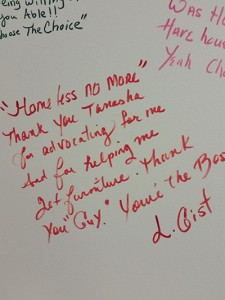 eing willing
you Able!!
hoose The Choice"
Was Ho
Have hou
Yeah Ch
"Homeless no More"
Thank you Tanesha
for advocating for me
And for helping me
get furniture. Thank
You "Guy." You're the Bos
L. Gist